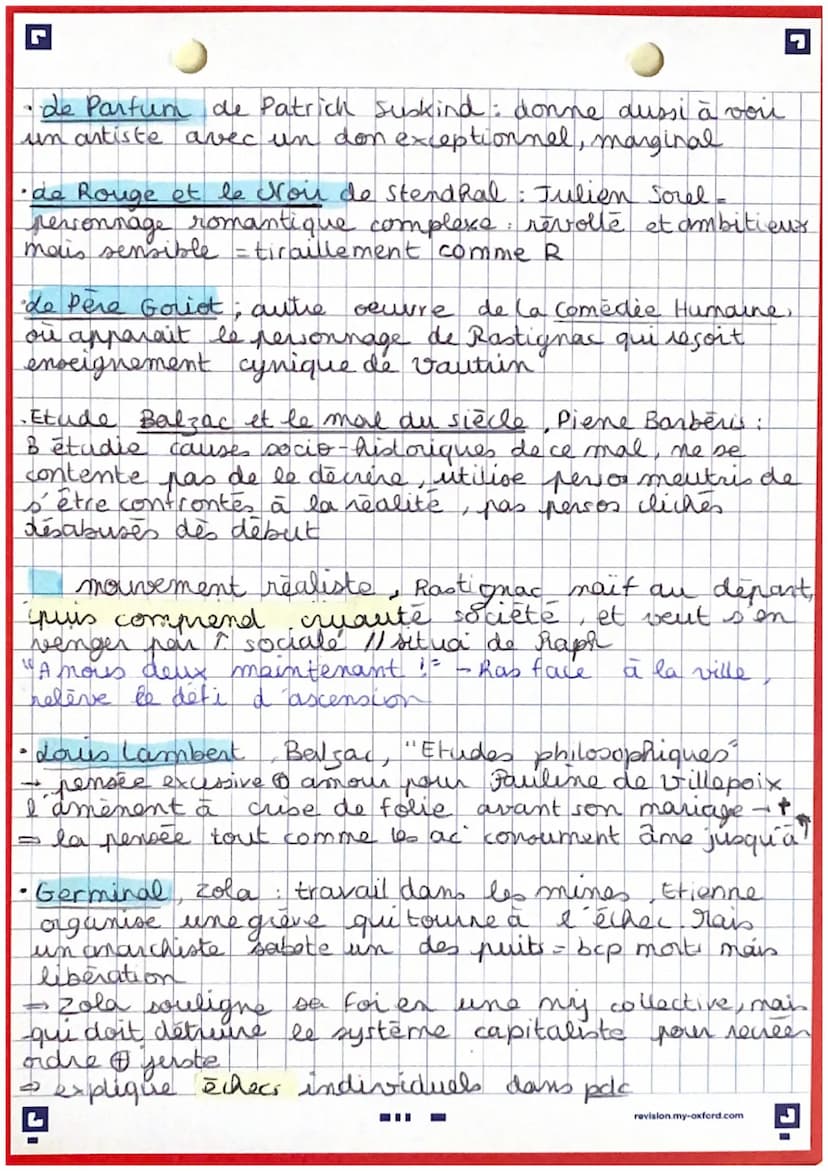 • Le Parfum de Patrick Suskind : donne aussi à voir
un artiste avec un don exceptionnel, marginal
• Le Rouge et le Noir de Stendhal : Julien Sorel =
personnage romantique complexe : révolté et ambitieux
mais sensible = tiraillement comme R
• Le Père Goriot ; autre oeuvre de la Comédie Humaine,
où apparait le personnage de Rastignac qui reçoit
enseignement cynique de Vautrin
. Etude Balzac et le mal du siècle, Pierre Barbéris :
B étudie causes socio-historiques de ce mal, ne se
contente pas de le décrire, utilise persos meutris de
s'être confrontés à la réalité, pas persos clichés
désabusés dès début
mouvement réaliste, Rastignac naïf au départ,
puis comprend cruauté société, et veut s'en
venger par ↑ sociale // situa° de Raph
"A nous deux maintenant !" - Ras face à la ville,
relève le défi d'ascension
• Louis Lambert, Balzac, "Etudes philosophiques"
→ pensée excessive ⊕ amour pour Pauline de Villenoix
l'amènent à crise de folie avant son mariage → †
⇒ la pensée tout comme les ac° consument âme jusqu'à †
• Germinal, Zola : travail dans les mines, Etienne
organise une grève qui tourne à l'échec. Mais
un anarchiste sabote un des puits = bcp morts mais
libération
⇒ Zola souligne sa foi en une collective, mais
qui doit détruire le système capitaliste pour recréer
ordre ⊕ juste
⇒ explique échecs individuels dans pdc
revision.my-oxford.com